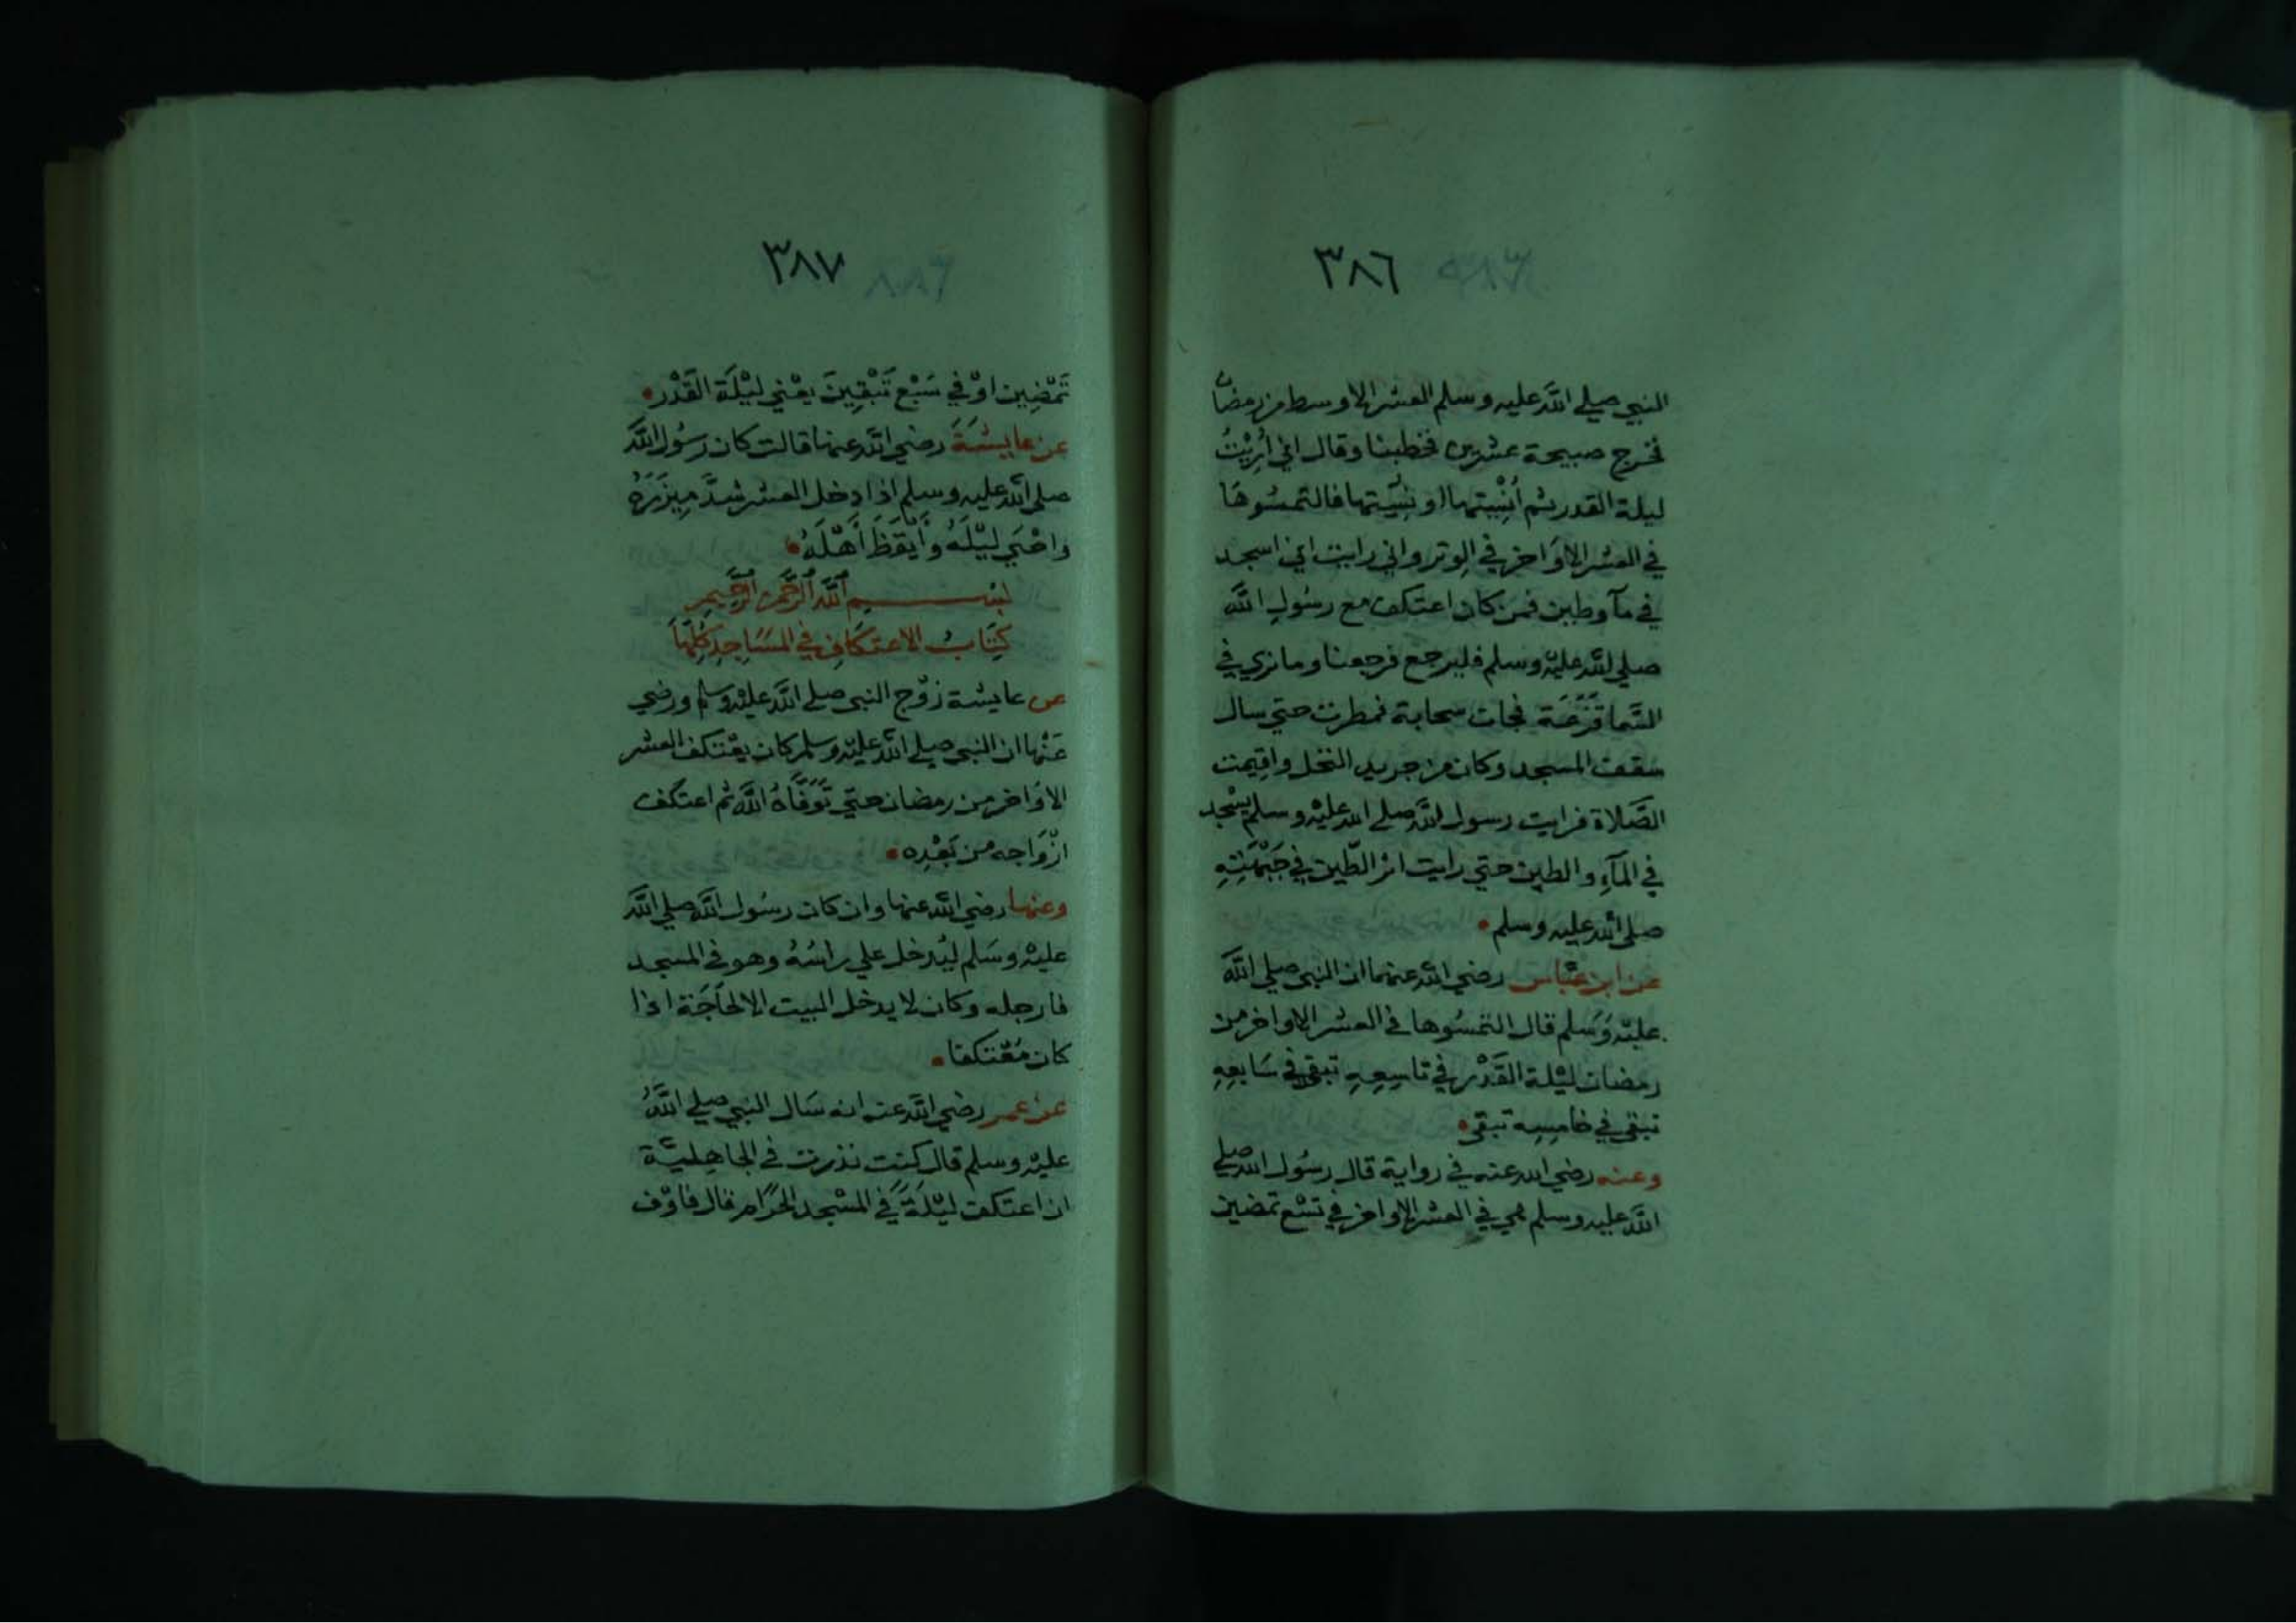 ٣٨٦
النبي صلي الله عليه وسلم العشر الاوسط من رمضان
فخرج صبيحة عشرين فخطبنا وقال اني اُرِيْتُ
ليلة القدر ثم اُنْسِيتها او نسيتها فالتمسُوهَا
في العشر الاوَاخر في الوتر واني رايت اني اسجد
في مآ وطين فمن كان اعتكف مع رسُولِ اللَّه
صلي الله عليْه وسلم فليرجع فرجعنا وما نري في
السَّما قَزَعَة فجات سحابة فمطرت حتي سال
سقف المسجد وكان من جريد النخل واقيمت
الصَّلاة فرايت رسول اللَّه صلي الله عليْه وسلم يسْجد
في المآءِ والطين حتي رايت اثر الطّين في جَبْهَتِهِ
صلي الله عليه وسلم
عن ابن عبَّاس رضي الله عنهما ان النبي صلي اللَّه
عليْه وَسَلم قال التمسُوها في العشر الاواخر من
رمضان ليْلة القَدْر في تاسِعِهِ تبقي في سَابعِهِ
تبقي في خامِسِه تبقي
وعنه رضي الله عنه في رواية قال رسُول الله صلي
اللَّه عليه وسلم هي في العشر الاواخر في تسْع تمضين
٣٨٧
تَمْضِين اوْ في سَبْع تَبْقِينَ يعْني ليْلَة القَدْر
عن عايشَةَ رضي الله عنها قالت كان رسُول اللَّه
صلي الله عليه وسلم اذا دخل العشر شدَّ مِيزَرَهُ
واحْيَي ليْلَهُ وأَيْقَظَ أَهْلَهُ
بسْم اللَّه الرَّحْمن الرَّحِيمِ
كِتَابُ الاعتكَافِ في المسَاجِدِ كُلِّهَا
عن عايشة زوْج النبي صلي اللَّه عليْه وسلم ورضي
عَنْها ان النبي صلي الله عليْه وسلم كان يعْتكف العشر
الاوَاخر من رمضان حتي تَوَفَّاهُ اللَّه ثم اعتكف
ازْوَاجه من بَعْدِه
وعنها رضي الله عنها وان كان رسُول اللَّه صلي اللَّه
عليْه وسَلم ليُدخل علي راسَهُ وهو في المسجد
فارجله وكان لا يدخل البيت الا لحَاجَة اذا
كان مُعْتكفا
عن عمر رضي الله عنه انه سَال النبي صلي اللَّهُ
عليْه وسلم قال كنت نذرت في الجاهِليَّة
ان اعتكف ليْلَةً في المسْجد الحَرَام قال فاوْف